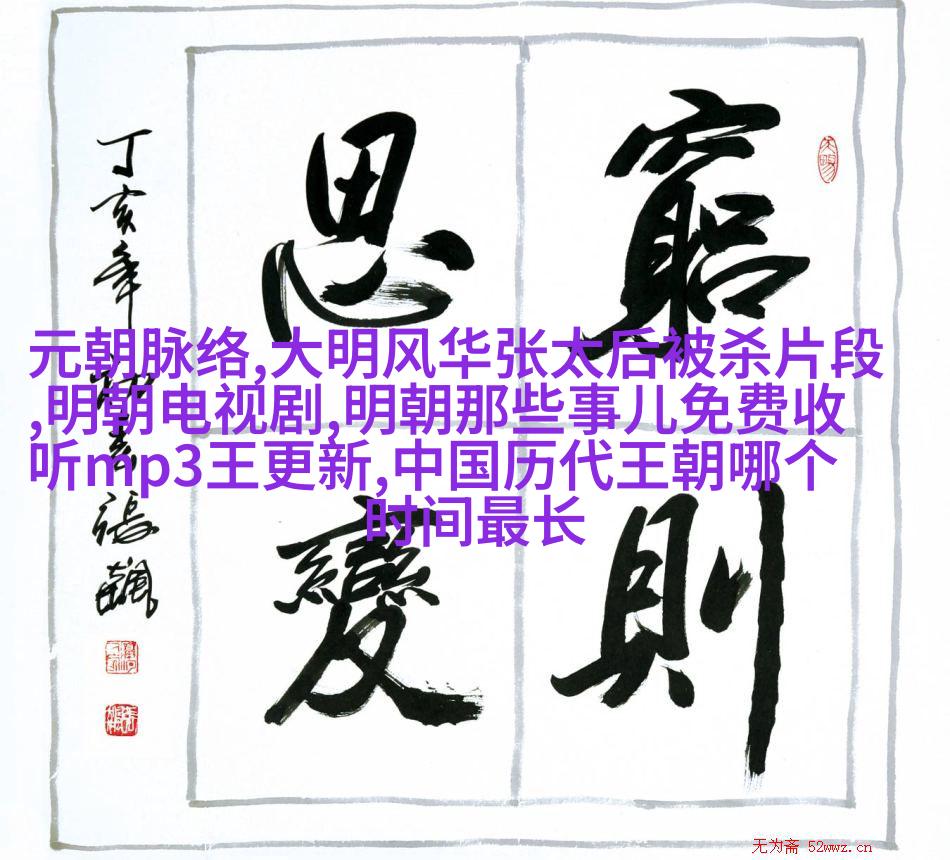 窮則
思變
丁亥年
張飆
元朝脉络,大明风华张太后被杀片段
,明朝电视剧,明朝那些事儿免费收
听mp3王更新,中国历代王朝哪个
时间最长
无为斋 52wwz.cn